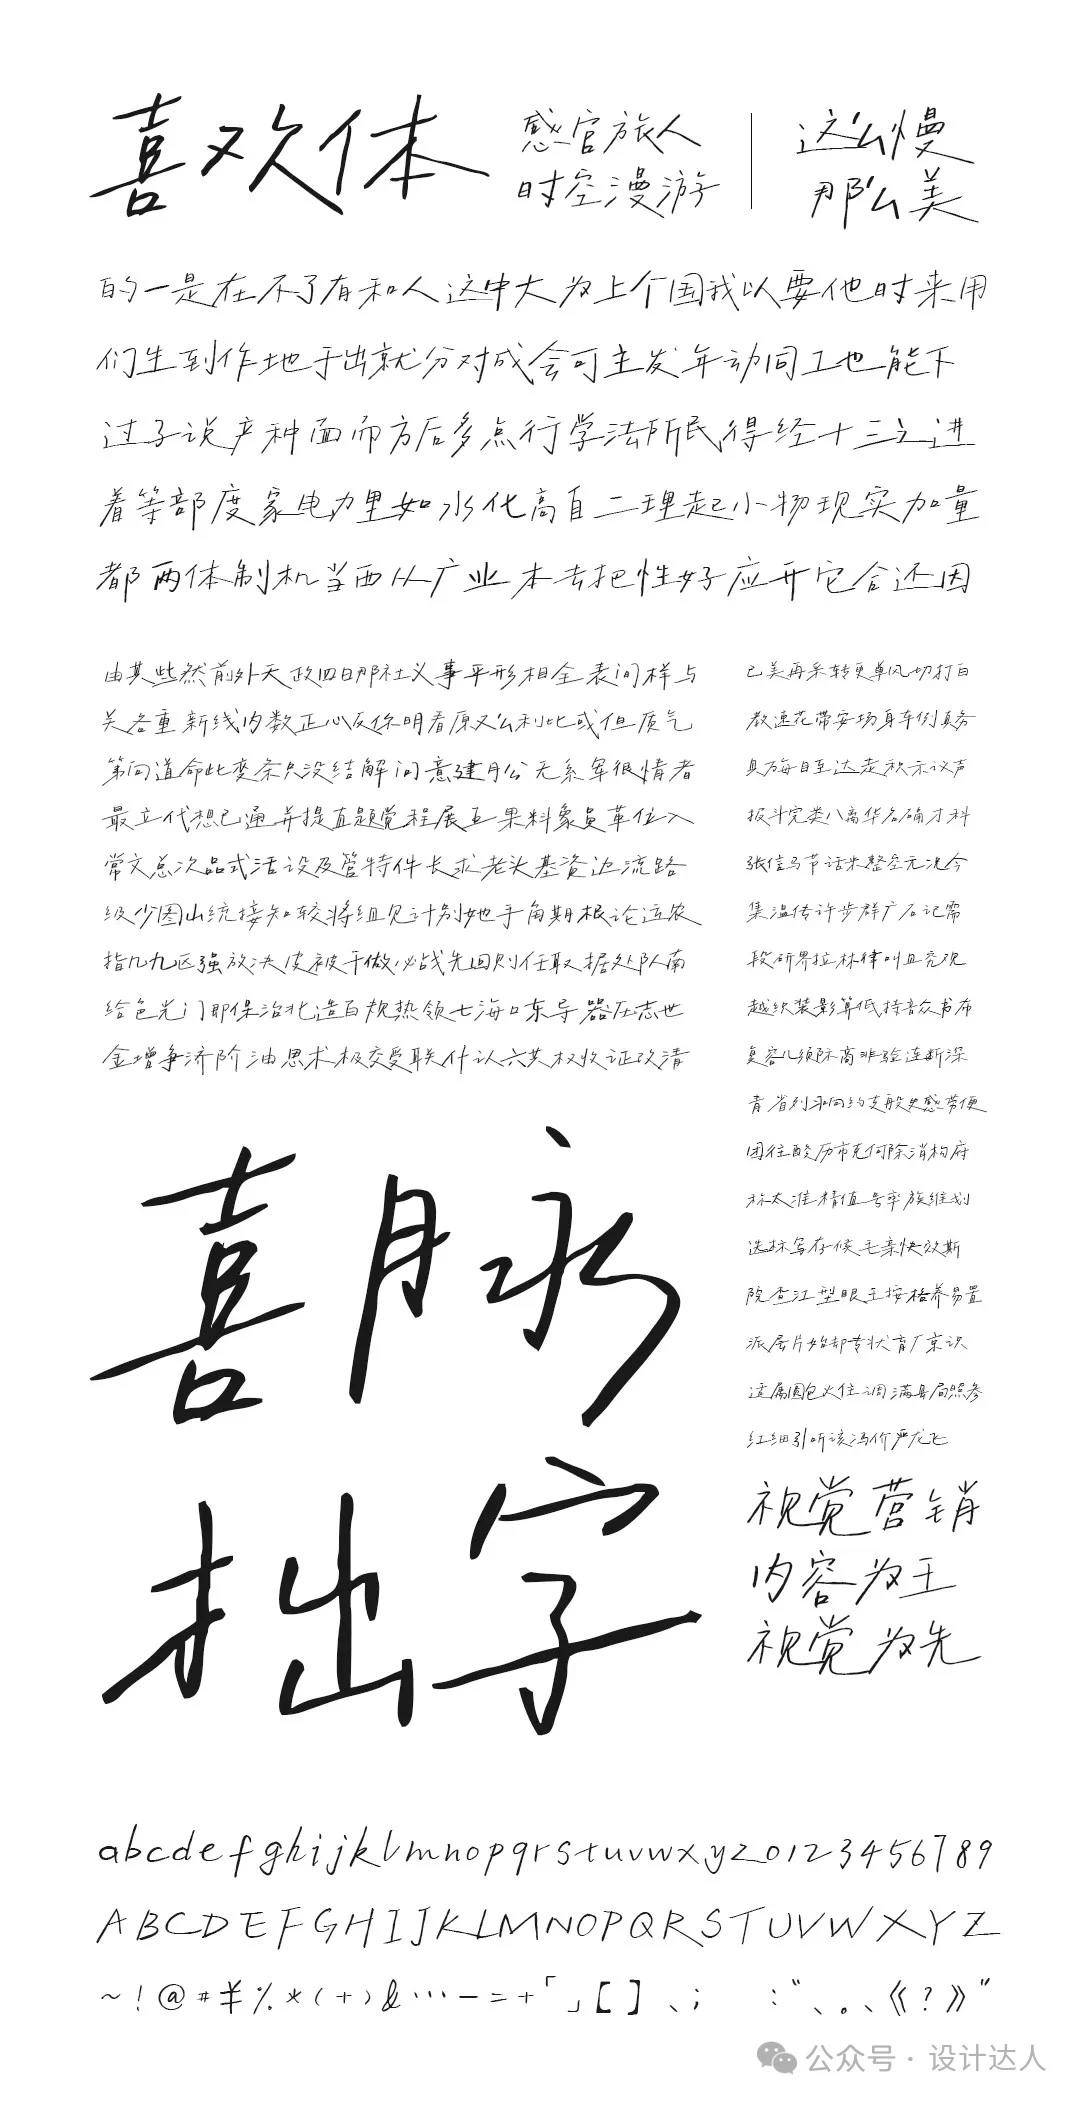 喜欢体
感官旅人
时空漫游
这么慢
那么美
的一是在不了有和人这中大为上个国我以要他时来用
们生到作地于出就分对成会可主发年动同工也能下
过子说产种面而方后多点行学法所民得经十三之进
着等部度家电力里如水化高自二理起小物现实加量
都两体制机当西从广业本去把性好应开它合还因
由其些然前外天政四日那社义事平形相全表间样与
关各重新线内数正心反你明看原又么利比或但质气
第向道命此变条只没结解问意建月公无系军很情者
最立代想已通并提直题党程展五果料象员革位入
常文总次品式活设及管特件长求老头基资边流路
级少图山统接知较将组见计别她手角期根论运农
指几九区强放决皮被干做必战先回则任取据处队南
给色光门即保治北造百规热领七海口东导器压志世
金增争济阶油思术极交受联什认六共权收证改清
己美再采转更单风切打白
教速花带安场身车例真务
具万每目至达走积示议声
报斗完类八离华名确才科
张信马节话米整空元况今
集温传许步群广石记需
段研界拉林律叫且究观
越织装影算低持音众书布
复容儿须际商非验连断深
青省列永响约支般史感劳便
团往酸历市克何除消构府
称太准精值号率族维划
选标写存候毛亲快效斯
院查江型眼王按格养易置
派层片始却专状育厂京识
这属圆包火住调满县局照参
红细引听该冯价严龙飞
喜脉
拙字
视觉营销
内容为王
视觉为先
abcdefghijklmnopqrstuvwxyz0123456789
ABCDEFGHIJKLMNOPQRSTUVWXYZ
~!@#¥%*(+)&…-=+「」【】、; :“、。、《?》”
公众号·设计达人